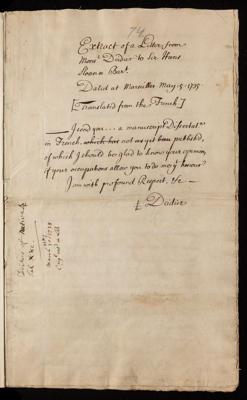 74
Extract of a Letter from
Monsr. Didier to Sir Hans
Sloane Bart.
Dated at Marseilles May. 5. 1735
[Translated from the French]
I send you... a manuscript Dissertatn.
in French, which has not as yet been publish'd,
of which I should be glad to know your opinion,
if your occupations allow you to do me ye. honour
I am with profound Respect, &c
Didier